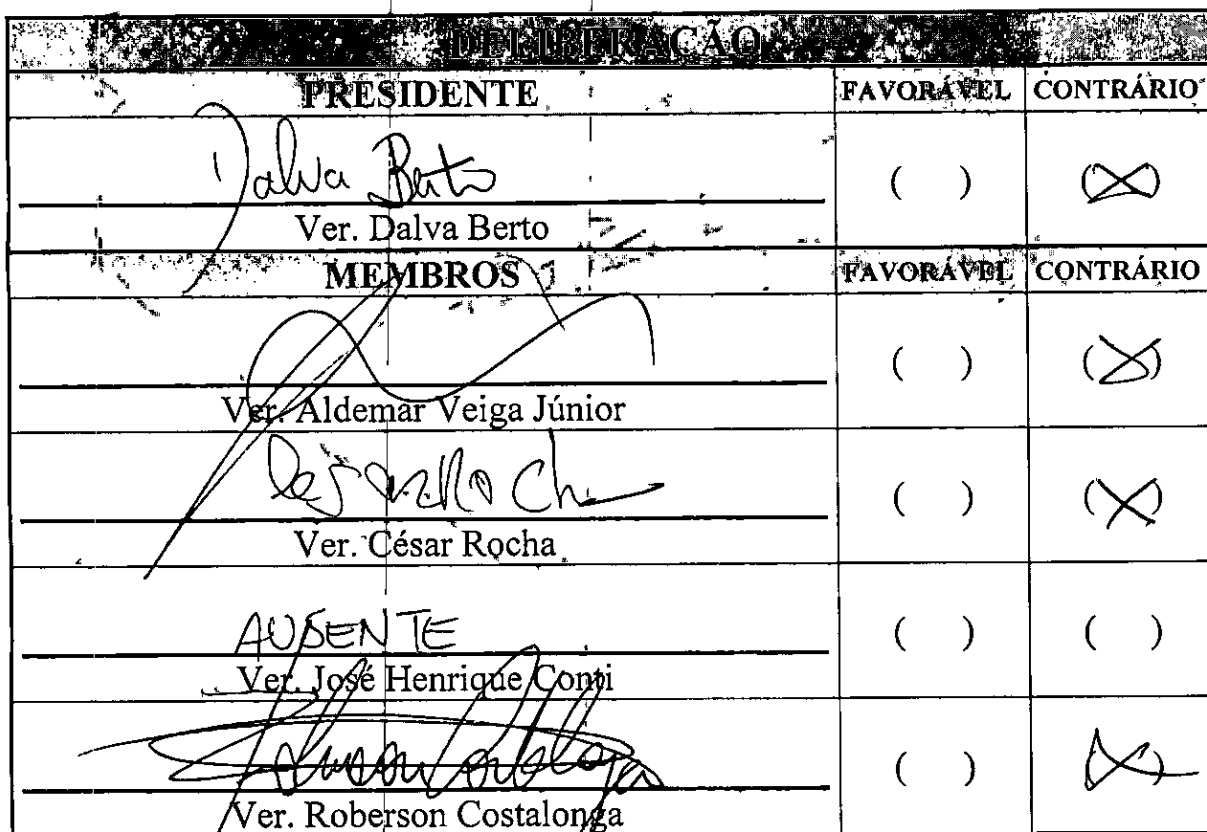 DELIBERAÇÃO
PRESIDENTE FAVORÁVEL CONTRÁRIO
Dalva Berto ( ) (X)
Ver. Dalva Berto
MEMBROS FAVORÁVEL CONTRÁRIO
( ) (X)
Ver. Aldemar Veiga Júnior
( ) (X)
Ver. César Rocha
AUSENTE ( ) ( )
Ver. José Henrique Conti
( ) (X)
Ver. Roberson Costalonga